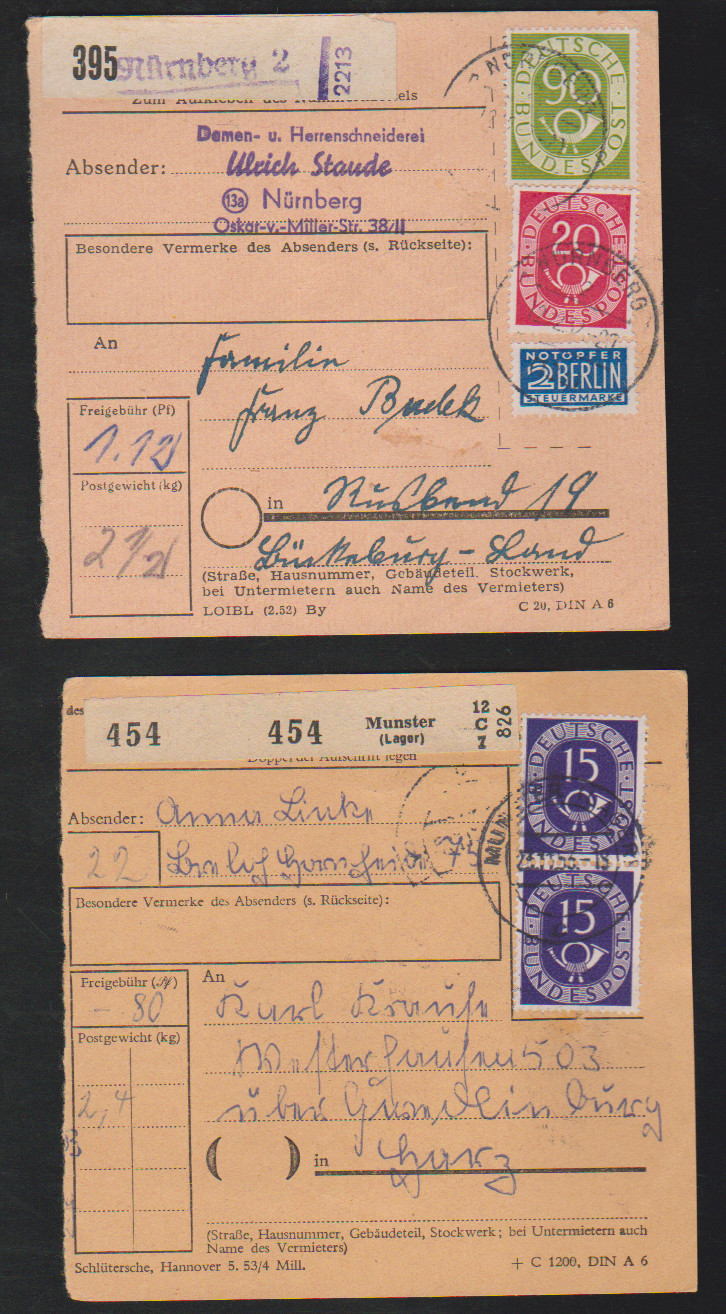 395 Nürnberg 2 2213
Zum Aufkleben des
Damen- u. Herrenschneiderei
Absender: Ulrich Staude
13a Nürnberg
Oskar-v.-Miller-Str. 38/II
Besondere Vermerke des Absenders (s. Rückseite):
An
Familie
Franz Budek
Freigebühr (Pf)
1.12
Postgewicht (kg)
2 1/2
in Rusbend 19
Bückeburg-Land
(Straße, Hausnummer, Gebäudeteil, Stockwerk,
bei Untermietern auch Name des Vermieters)
LOIBL (2.52) By C 20, DIN A 6
DEUTSCHE BUNDESPOST
90
DEUTSCHE BUNDESPOST
20
NÜRNBERG
NOTOPFER
2 BERLIN
STEUERMARKE
des
454 454 Munster (Lager) 12 C 7 826
Doppel der Aufschrift legen
Absender: Anna Linke
22 75
Besondere Vermerke des Absenders (s. Rückseite):
Freigebühr
- 80
Postgewicht (kg)
2,4
An
Karl Krause
Westerhausen 503
über Quedlinburg
in Harz
(Straße, Hausnummer, Gebäudeteil, Stockwerk; bei Untermietern auch
Name des Vermieters)
Schlütersche, Hannover 5. 53/4 Mill. + C 1200, DIN A 6
DEUTSCHE BUNDESPOST
15
DEUTSCHE BUNDESPOST
15